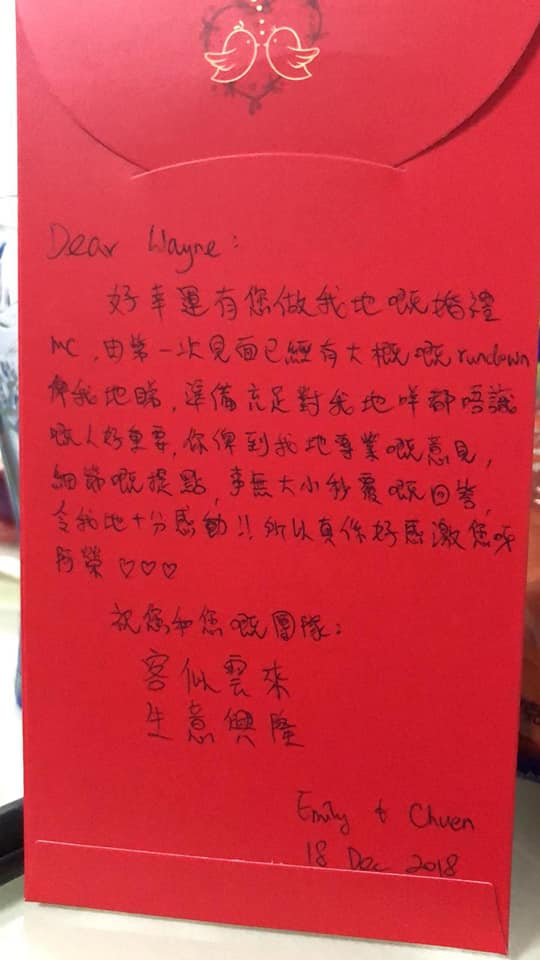 Dear Wayne:
好幸運有您做我地嘅婚禮
MC,由第一次見面已經有大概嘅rundown
俾我地睇,準備充足對我地咩都唔識
嘅人好重要,你俾到我地專業嘅意見,
細節嘅提點,事無大小秒覆嘅回答,
令我地十分感動!!所以真係好感激您呀
阿榮♡♡♡
祝您和您嘅團隊:
客似雲來
生意興隆
Emily & Chuen
18 Dec 2018